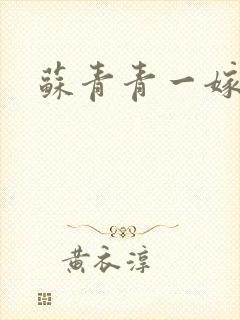 蘇青青一嫁
黄衣淳